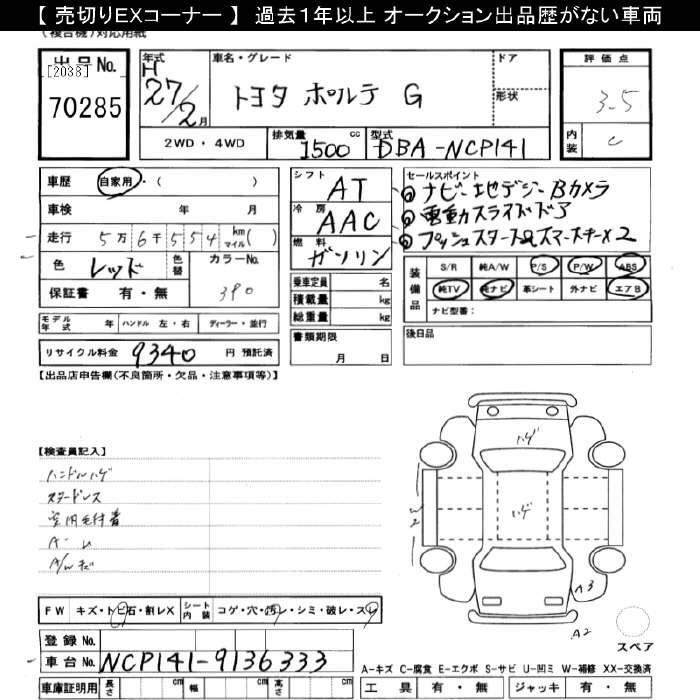 【 売切りEXコーナー 】 過去１年以上 オークション出品歴がない車両
(複合機)対応用紙
出品No.
[2038]
70285
年式
H
27/2月
車名・グレード
トヨタ ポルテ G
ドア
形状
評価点
3.5
内装
C
2WD・4WD
排気量
1500 cc
型式
DBA-NCP141
車歴 自家用・( )
車検 年 月
走行 5万6千554 km マイル( )
色 レッド 色替 カラーNo.
390
保証書 有・無
シフト
AT
冷房
AAC
燃料
ガソリン
乗車定員 名
積載量 kg
総重量 kg
書類期限
月 日
セールスポイント
ナビー地デジーBカメラ
電動スライドドア
プッシュスタート
装備品
S/R 純A/W P/S P/W ABS
純TV 純ナビ 革シート 外ナビ エアB
ナビ型番：
後日品
モデル年式 年 ハンドル 左・右 ディーラー・並行
リサイクル料金 9340 円 預託済
【出品店申告欄(不良箇所・欠品・注意事項等)】
【検査員記入】
ハンドルハゲ
室内毛付着
ハゲ
ハゲ
W2
A3
A2
スペア
FW キズ・トビ石・割レX シート内装 コゲ・穴・汚レ・シミ・破レ・スレ
登録No.
車台No. NCP141-9136333
車庫証明用 長さ cm 幅 cm 高さ cm
A-キズ C-腐食 E-エクボ S-サビ U-凹ミ W-補修 XX-交換済
工具 有・無 ジャッキ 有・無